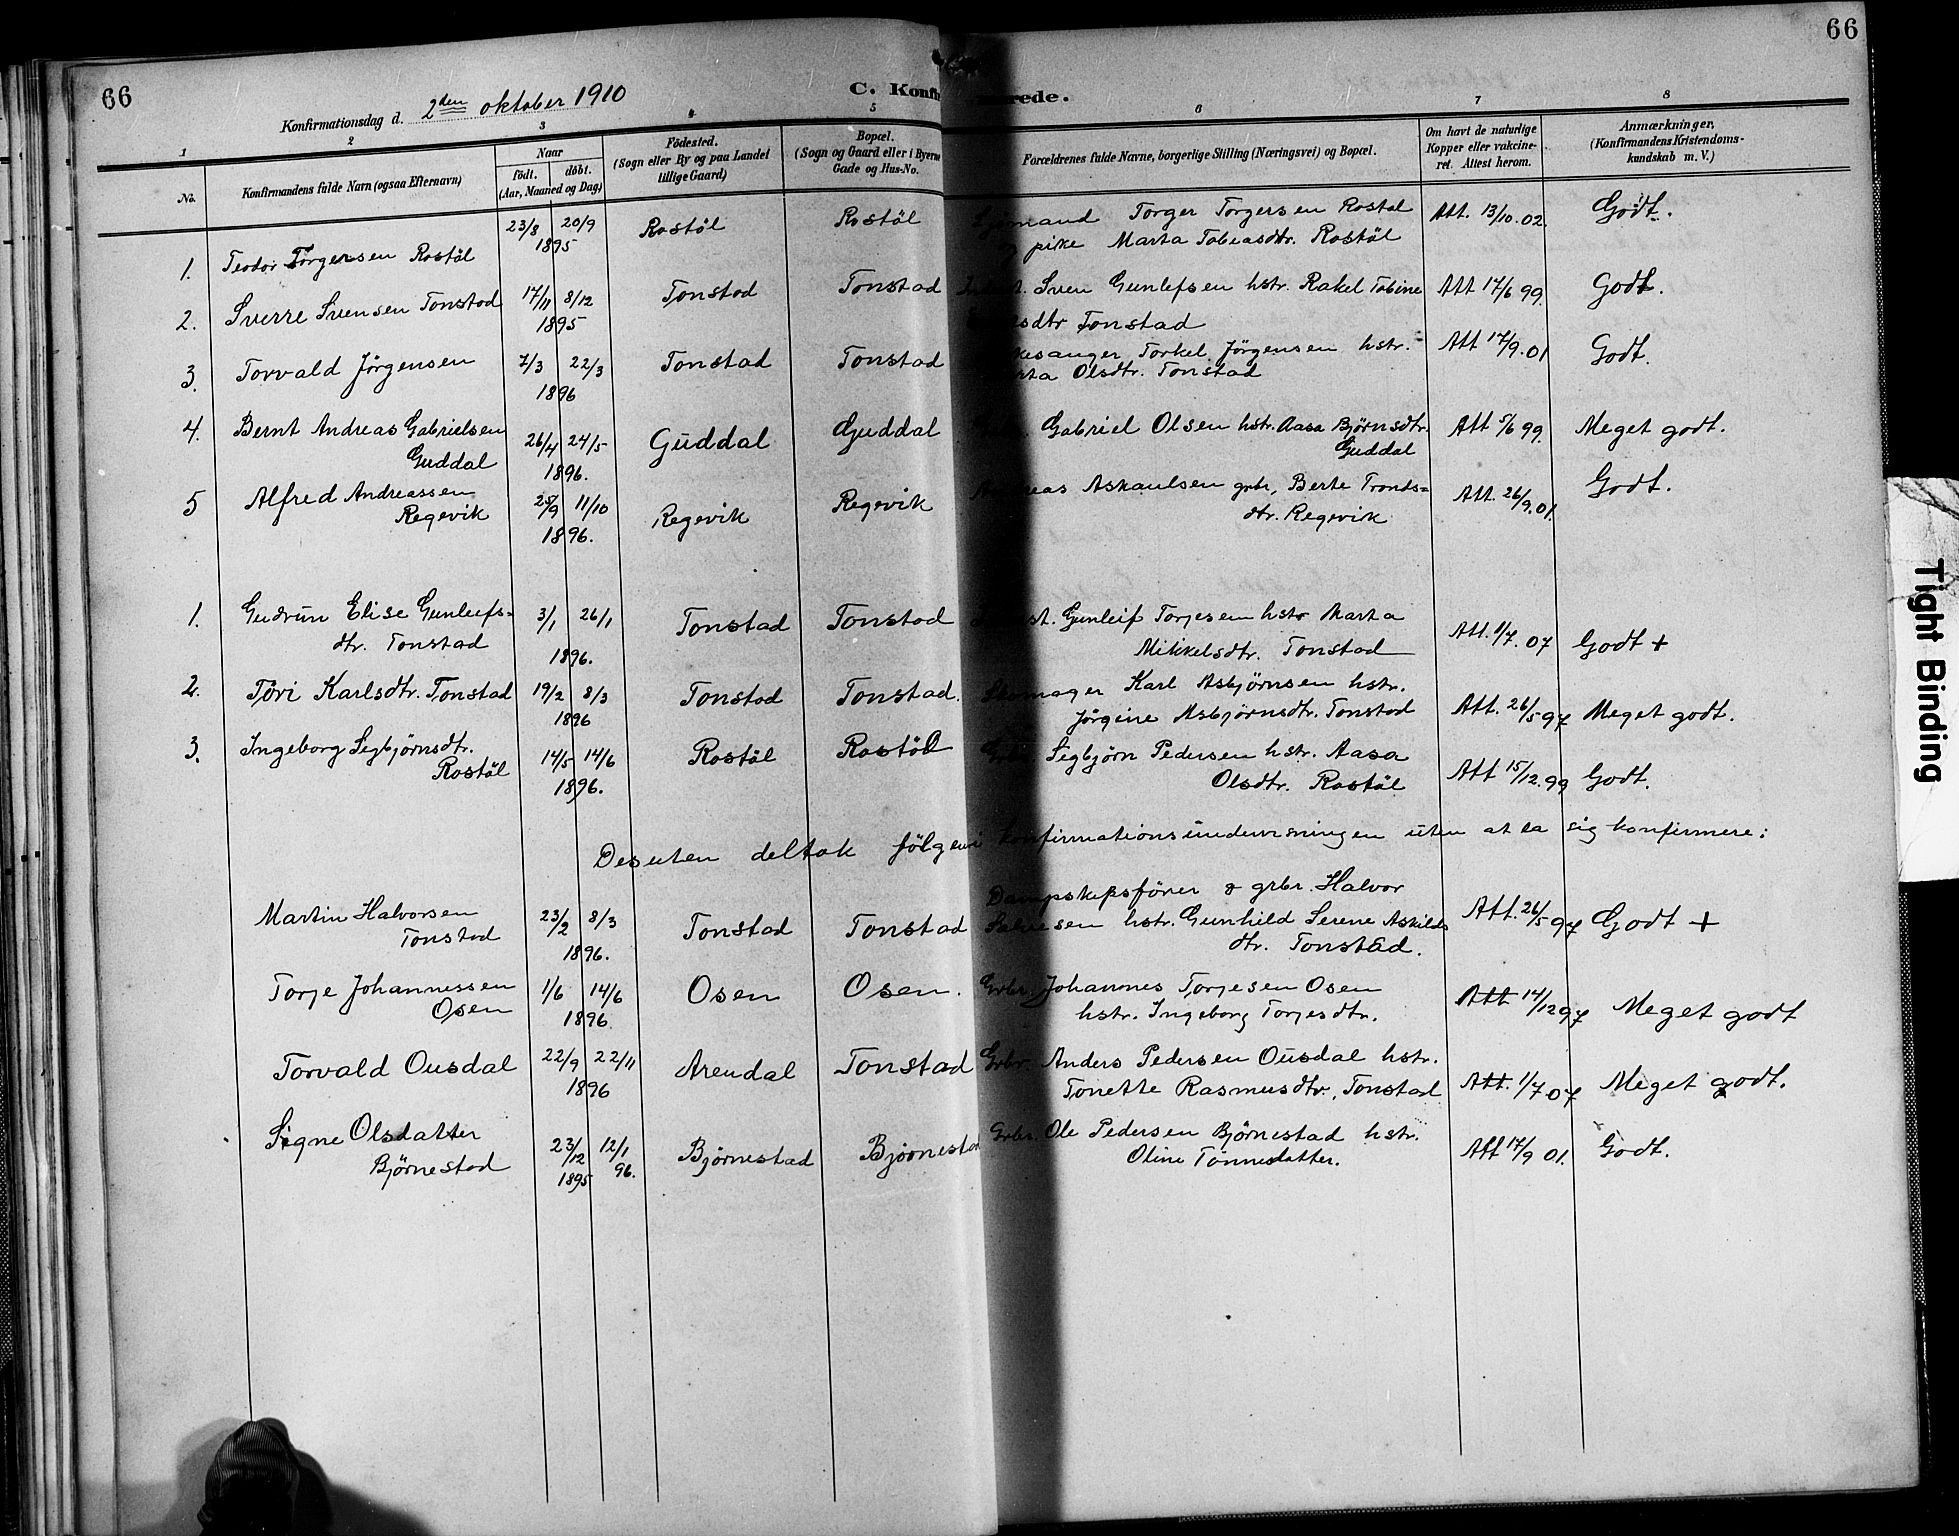 66
66
Konfirmationsdag d. 2den oktober 1910
C. Konfir rede.
1 2 3 4 5 6 7 8
No.
Konfirmandens fulde Navn (ogsaa Efternavn)
Naar
födt. döbt.
(Aar, Maaned og Dag)
Födested.
(Sogn eller By og paa Landet
tillige Gaard)
Bopæl.
(Sogn og Gaard eller i Byerne
Gade og Hus-No.
Forældrenes fulde Navne, borgerlige Stilling (Næringsvei) og Bopæl.
Om havt de naturlige
Kopper eller vakcine-
ret. Attest herom.
Anmærkninger,
(Konfirmandens Kristendoms-
kundskab m. V.)
1. Teodor Torgersen Rostöl 23/8 20/9 1895 Rostöl Rostöl
Sjömand Torger Torgersen Rostøl
pike Marta Tobeasdtr. Rostöl
Att. 13/10.02. Godt.
2. Sverre Svensen Tonstad 17/11 8/12 1895 Tonstad Tonstad
Sven Gunlefsen hstr. Rakel Tobine
sdtr Tonstad
Att 17/6 99. Godt.
3. Torvald Jörgensen 7/3 22/3 1896 Tonstad Tonstad
kesanger Torkel Jörgensen hstr.
rta Olsdtr. Tonstad
Att 17/9.01 Godt.
4. Bernt Andreas Gabrielsen
Guddal
26/4 24/5 1896. Guddal Guddal
Gabriel Olsen hstr. Aasa Björnsdtr.
Guddal
Att 5/6 99. Meget godt.
5 Alfred Andreassen
Regevik
25/9 11/10 1896. Regevik Regevik
Andreas Askaulsen grbr, Berte Tronds=
dtr. Regevik
Att. 26/9.01. Godt.
1. Gudrun Elise Gunleifs=
dtr. Tonstad
3/1 26/1 1896. Tonstad Tonstad
st. Gunleif Torjesen hstr Marta
Mikkelsdtr. Tonstad
Att. 1/7.07 Godt +
2. Töri Karlsdtr. Tonstad 19/2 8/3 1896 Tonstad Tonstad.
Skomager Karl Asbjörnsen hstr.
Jörgine Asbjörnsdtr. Tonstad
Att. 26/5 97 Meget godt.
3. Ingeborg Segbjörnsdtr.
Rostöl
14/5 14/6 1896. Rostöl Rostöl
Grbr. Segbjörn Pedersen hstr. Aasa
Olsdtr. Rostöl
Att 15/12.99 Godt.
Desuten deltok fölgene konfirmationsundervisningen uten at la sig konfirmere:
Martin Halvorsen
Tonstad
23/2 8/3 1896. Tonstad Tonstad
Dampskipsförer & grbr. Halvor
Salvesen hstr. Gunhild Serene Askilds
dtr. Tonstad.
Att. 26/5 97 Godt +
Torje Johannessen
Osen
1/6 14/6 1896. Osen Osen.
Grbr. Johannes Torjesen Osen
hstr. Ingeborg Torjesdtr.
Att 14/12 97 Meget godt
Torvald Ousdal 22/9 22/11 1896 Arendal Tonstad
Grbr. Anders Pedersen Ousdal hstr.
Tonette Rasmusdtr., Tonstad
Att. 1/7 07 Meget godt.
Signe Olsdatter
Björnestad
23/12 1895 12/1 96. Björnestad Björnestad
Grbr. Ole Pedersen Björnestad hstr.
Oline Tönnesdatter.
Att 17/9 01. Godt.
Tight Binding